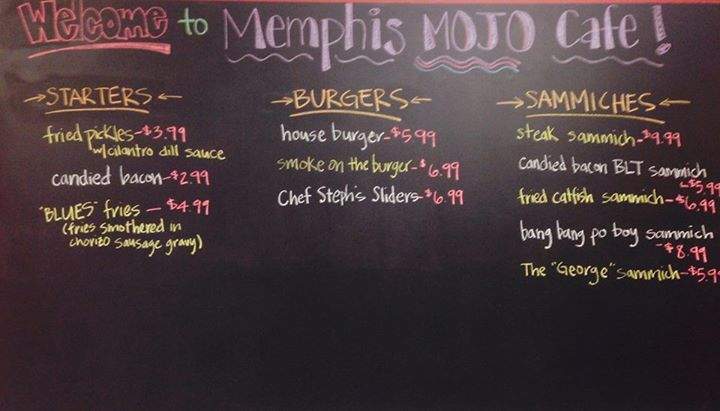 Welcome to Memphis MOJO Cafe!
→STARTERS←
fried pickles-$3.99
w/cilantro dill sauce
candied bacon-$2.99
"BLUES" fries - $4.99
(fries smothered in
chorizo sausage gravy)
→BURGERS←
house burger-$5.99
smoke on the burger-$6.99
Chef Steph's Sliders-$6.99
→SAMMICHES←
steak sammich-$9.99
candied bacon BLT sammich
-$5.99
fried catfish sammich-$6.99
bang bang po boy sammich
-$8.99
The "George" sammich-$5.9